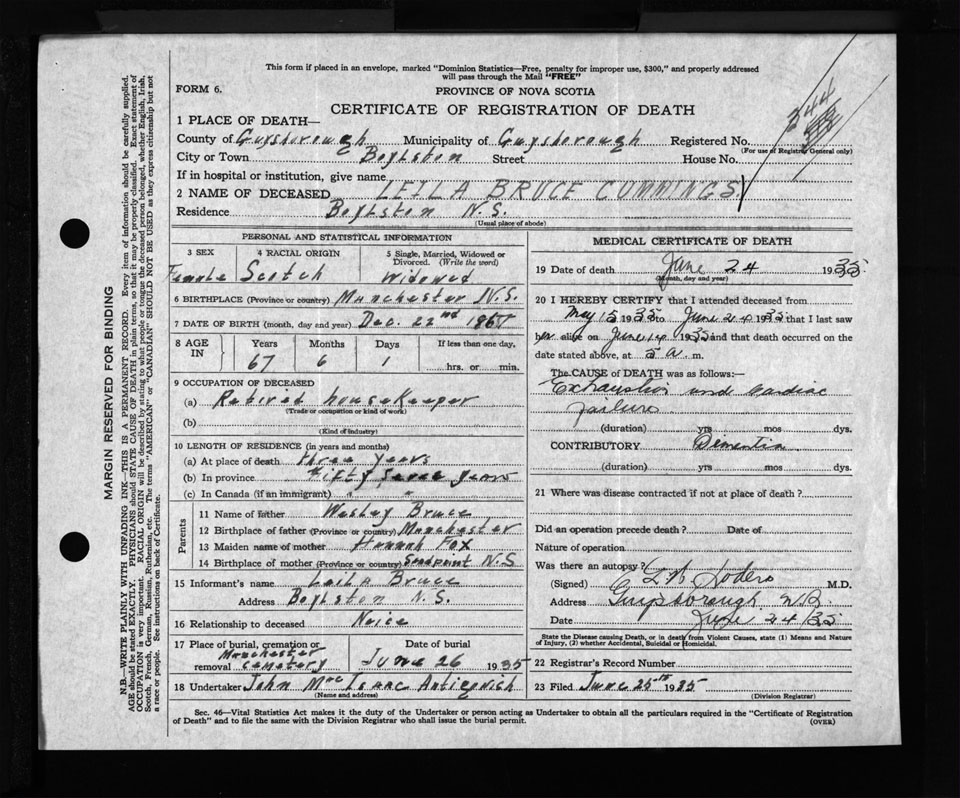 This form if placed in an envelope, marked "Dominion Statistics—Free, penalty for improper use, $300," and properly addressed
will pass through the Mail "FREE"
FORM 6.
PROVINCE OF NOVA SCOTIA
CERTIFICATE OF REGISTRATION OF DEATH
344
1 PLACE OF DEATH—
County of Guysborough Municipality of Guysborough Registered No.
(For use of Registrar General only)
City or Town Boylston Street House No.
If in hospital or institution, give name
2 NAME OF DECEASED LEILA BRUCE CUMMINGS
Residence Boylston N.S.
(Usual place of abode)
PERSONAL AND STATISTICAL INFORMATION
3 SEX 4 RACIAL ORIGIN 5 Single, Married, Widowed or Divorced. (Write the word)
Female Scotch Widowed
6 BIRTHPLACE (Province or country) Manchester N.S.
7 DATE OF BIRTH (month, day and year) Dec. 22nd 1867
8 AGE IN Years Months Days If less than one day,
67 6 1 hrs. or min.
9 OCCUPATION OF DECEASED
(a) Retired housekeeper
(Trade or occupation or kind of work)
(b)
(Kind of industry)
10 LENGTH OF RESIDENCE (in years and months)
(a) At place of death three years
(b) In province Fifty years
(c) In Canada (if an immigrant) " "
Parents
11 Name of father Wesley Bruce
12 Birthplace of father (Province or country) Manchester
13 Maiden name of mother Hannah Fox
14 Birthplace of mother (Province or country) Sandpoint N.S
15 Informant's name Leila Bruce
Address Boylston N.S.
16 Relationship to deceased Neice
17 Place of burial, cremation or removal Manchester cemetery
Date of burial June 26 1935
18 Undertaker John MacIsaac Antigonish
(Name and address)
MEDICAL CERTIFICATE OF DEATH
19 Date of death June 24 1935
(Month, day and year)
20 I HEREBY CERTIFY that I attended deceased from
May 15 1935 to June 24 1935 that I last saw
her alive on June 14 1935 and that death occurred on the
date stated above, at 3 a. m.
The CAUSE of DEATH was as follows:—
Exhaustion and Cardiac
failure
(duration) yrs mos dys.
CONTRIBUTORY Dementia
(duration) yrs mos dys.
21 Where was disease contracted if not at place of death?
Did an operation precede death? Date of
Nature of operation
Was there an autopsy?
(Signed) M.D.
Address Guysborough N.S.
Date June 24/35
State the Disease causing Death, or in death from Violent Causes, state (1) Means and Nature
of Injury, (2) whether Accidental, Suicidal or Homicidal.
22 Registrar's Record Number
23 Filed June 25th 1935
(Division Registrar)
Sec. 46—Vital Statistics Act makes it the duty of the Undertaker or person acting as Undertaker to obtain all the particulars required in the "Certificate of Registration
of Death" and to file the same with the Division Registrar who shall issue the burial permit.
(OVER)
MARGIN RESERVED FOR BINDING
N.B.—WRITE PLAINLY WITH UNFADING INK—THIS IS A PERMANENT RECORD. Every item of information should be carefully supplied.
AGE should be stated EXACTLY. PHYSICIANS should STATE CAUSE OF DEATH in plain terms, so that it may be properly classified. Exact statement of
OCCUPATION is very important. RACIAL ORIGIN will be described by stating to what people or tongue the deceased person belonged, whether English, Irish,
Scotch, French, German, Russian, Ruthenian, etc. The terms "AMERICAN" or "CANADIAN" SHOULD NOT BE USED as they express citizenship but not
a race or people. See instructions on back of Certificate.